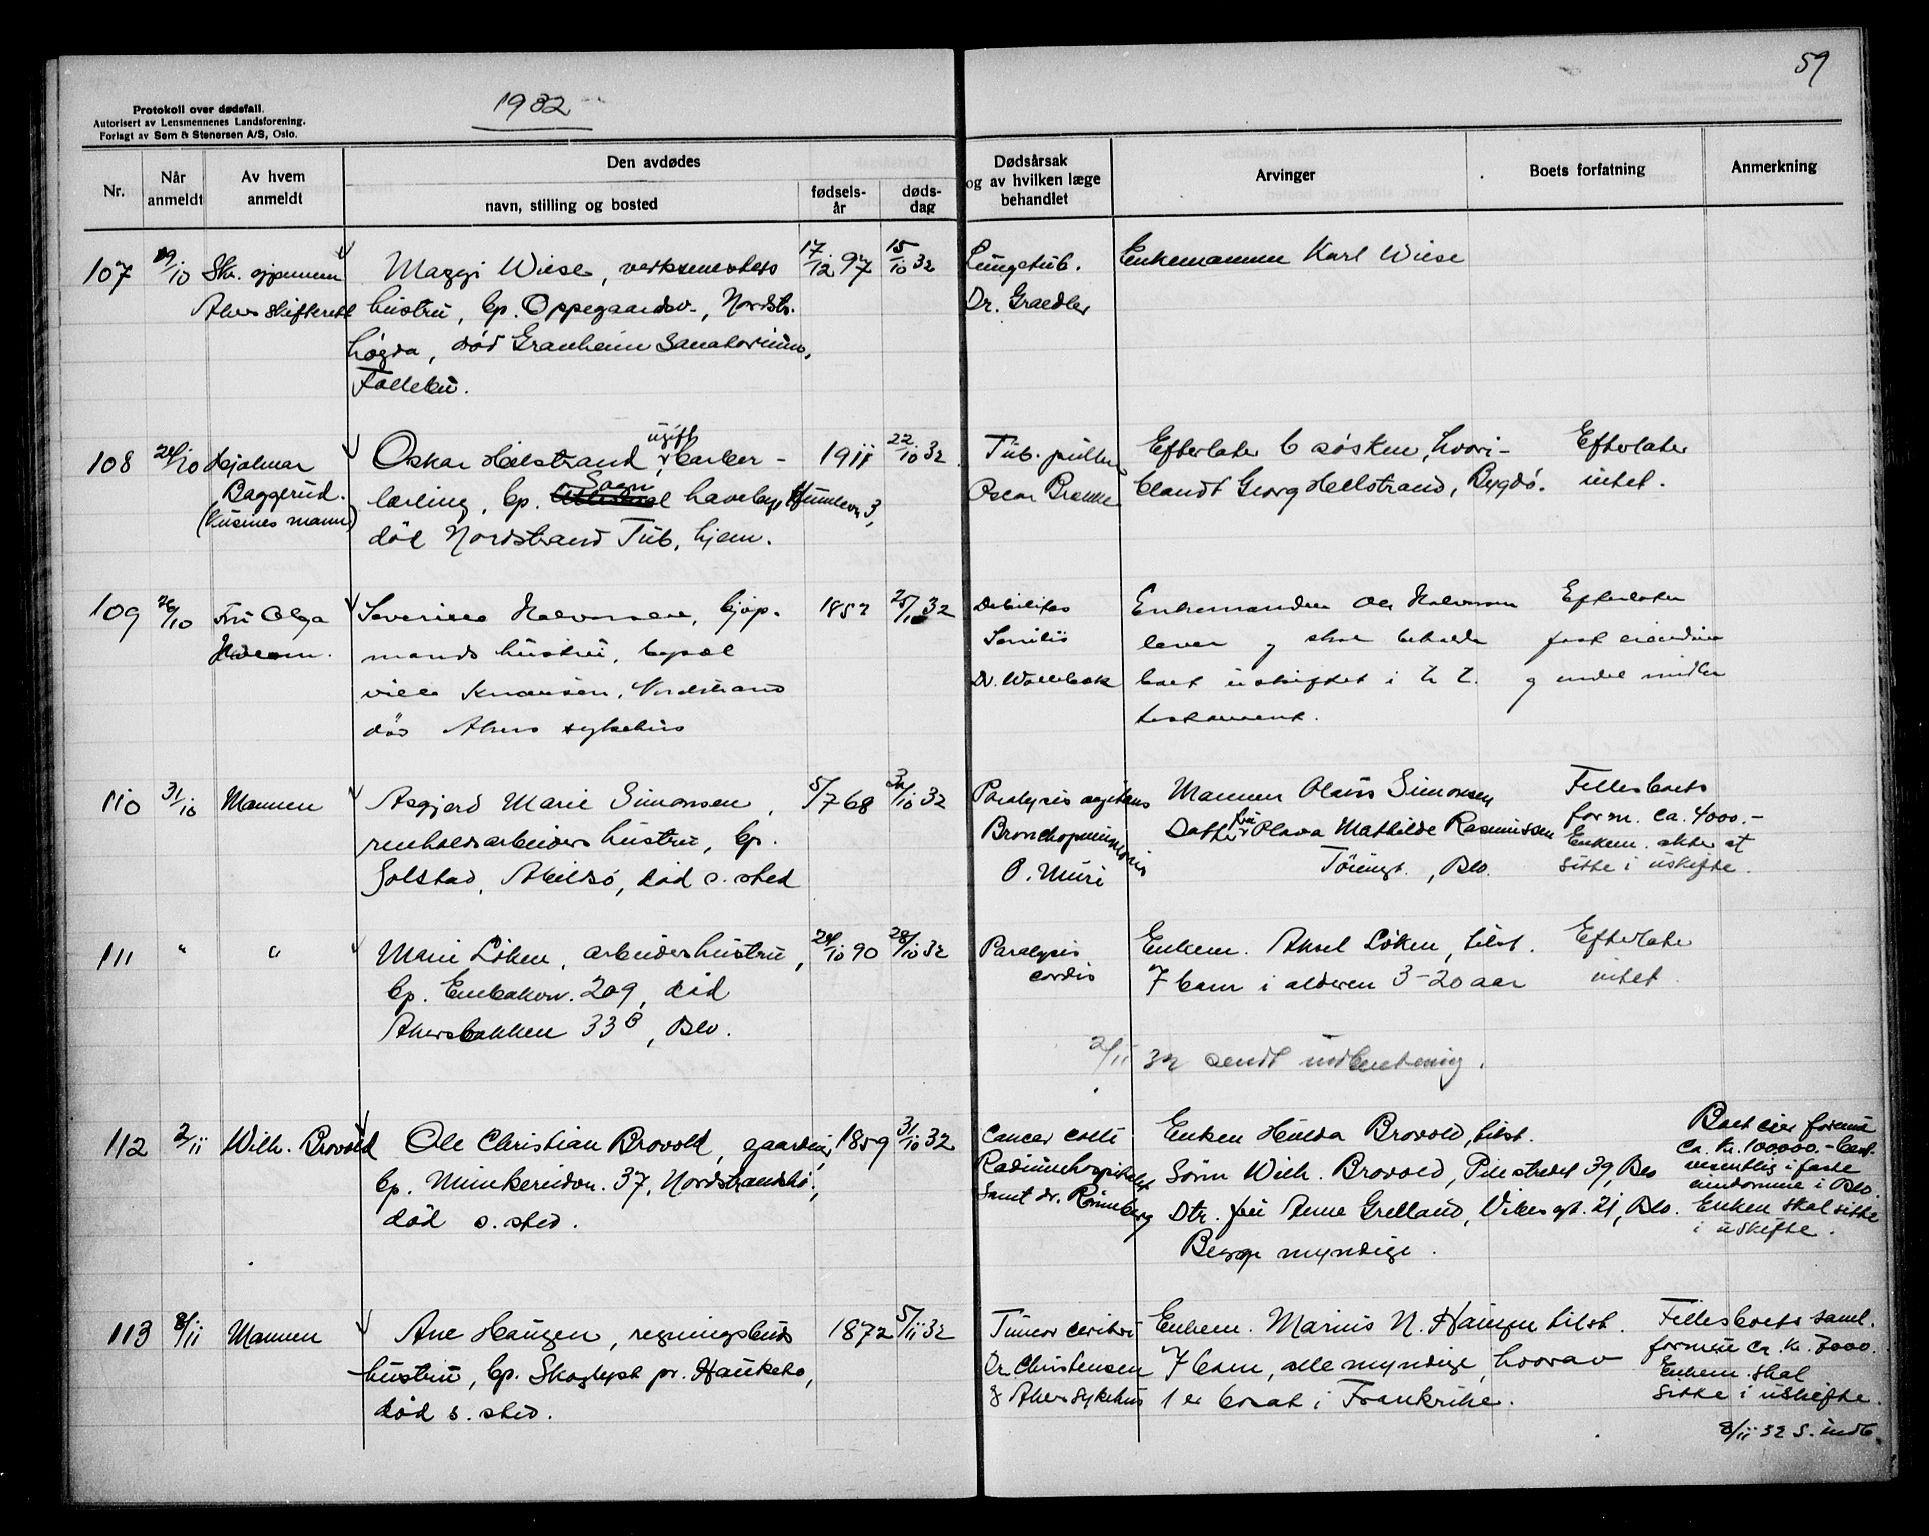 59
Protokoll over dødsfall.
Autorisert av Lensmennenes Landsforening.
Forlagt av Sem & Stenersen A/S, Oslo.
1932
Nr.
Når anmeldt
Av hvem anmeldt
Den avdødes
navn, stilling og bosted
fødsels-år
døds-dag
Dødsårsak og av hvilken læge behandlet
Arvinger
Boets forfatning
Anmerkning
107 19/10 Skr. gjennem Maggi Wiese, verksmesters 17/12 97 15/10 32 Lungetub. Enkemannen Karl Wiese
Akers skifterett hustru, bp. Oppegaardsv., Nordstr. Dr. Graedler
høgda, død Granheim Sanatorium,
Follebu.
108 24/10 Hjalmar Oskar Hellstrand, ugift barber- 1911 22/10 32 Tub. pulm. Efterlater 6 søsken, hvori- Efterlater
Baggerud. lærling, bp. Sogn haveby, 3, Oscar blandt Georg Hellstrand, Bygdø. intet.
(kusines mann) død Nordstrand Tub. hjem.
109 26/10 Fru Olga Halvorsen, kjøp- 1857 25/10 32 Debilitas Enkemanden Ole Halvorsen Efterlater
mands hustru, bopæl senilis lever og skal beholde fast eiendom
villa Knausen, Nordstrand Dr. boet uskiftet i h. t. og endel midler
død Akers sykehus testament.
110 31/10 Mannen Asgjerd Marie Simonsen, 5/7 68 30/10 32 Paralysis agitans Mannen Olaus Simonsen Fellesboets
renholdsarbeiders hustru, bp. Bronchopneumoni Datter fru Olava Mathilde Rasmussen form. ca. 4000.-
Solstad, Abildsø, død s. sted O. Muri , Oslo. Enkem. akter at
sitte i uskifte.
111 " " Marie Løken, arbeiderhustru, 24/10 90 28/10 32 Paralysis Enkem. Aksel Løken, tilst. Efterlater
bp. Enebakvn. 209, død cordis 7 barn i alderen 3-20 aar intet.
Akersbakken 33B, Oslo.
2/11 32 sendt indberetning.
112 2/11 Wilh. Brovold Ole Christian Brovold, gaardeier, 1859 31/10 32 Cancer colli Enken Hulda Brovold, tilst. Boet eier formue
bp. Munkerudvn. 37, Nordstrandshø., Radiumhospitalet Sønn Wilh. Brovold, Pilestredet 39, Oslo ca. kr. 100.000.- best.
død s. sted. samt dr. Rønneberg Dtr. fru Anne Grelland, Vibes gt. 21, Oslo. vesentlig i faste
Begge myndige. eiendomme i Oslo.
Enken skal sitte
i uskifte.
113 8/11 Mannen Ane Haugen, regningsbuds 1872 5/11 32 Tumor cerebri Enkem. Marius N. Haugen tilst. Fellesboets saml.
hustru, bp. Skoglyst pr. Hauketo, Dr. Christensen 7 barn, alle myndige, hvorav formue ca. kr. 7000.
død s. sted. & Akers sykehus 1 er bosat i Frankrike. Enkem. skal
sitte i uskifte.
8/11 32 S. indb.